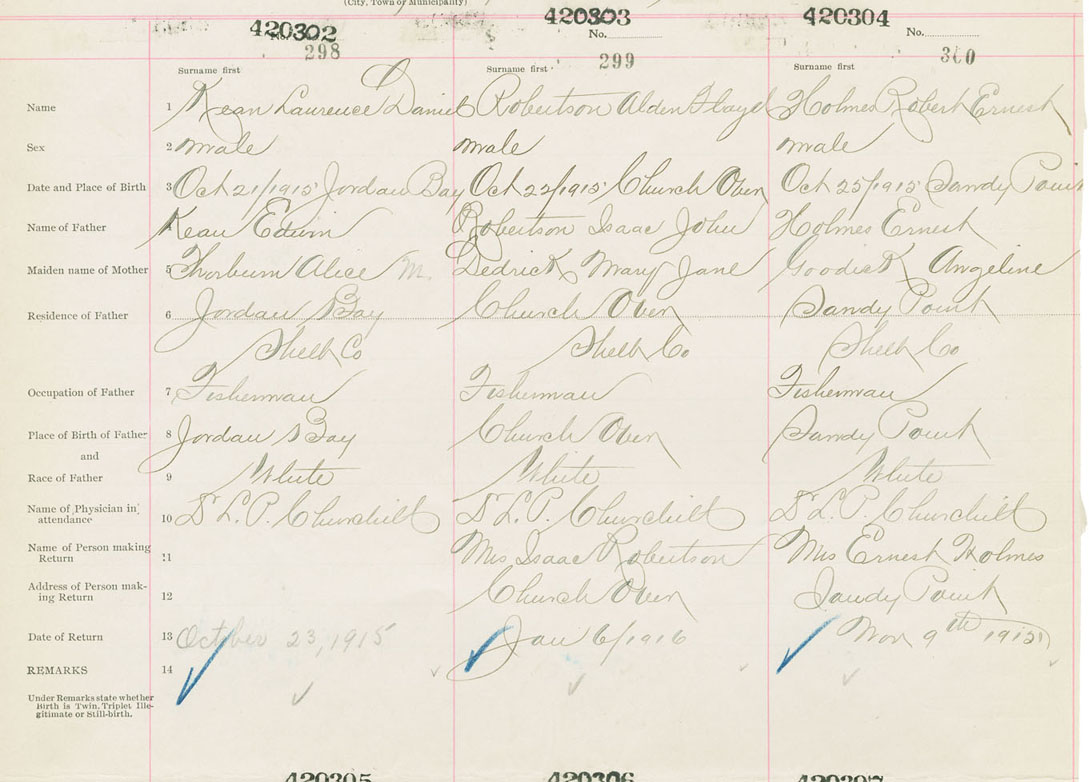 (City, Town or Municipality)
420302 420303 420304
No. No. No.
298 299 300
Surname first Surname first Surname first
Name 1 Kean Laurence Daniel Robertson Alden Floyd Holmes Robert Ernest
Sex 2 male male male
Date and Place of Birth 3 Oct 21/1915 Jordan Bay Oct 22/1915 Church Over Oct 25/1915 Sandy Point
Name of Father 4 Kean Edwin Robertson Isaac John Holmes Ernest
Maiden name of Mother 5 Thorburn Alice M. Dedrick Mary Jane Goodick Angeline
Residence of Father 6 Jordan Bay Church Over Sandy Point
Shelb Co Shelb Co Shelb Co
Occupation of Father 7 Fisherman Fisherman Fisherman
Place of Birth of Father 8 Jordan Bay Church Over Sandy Point
and
Race of Father 9 White White White
Name of Physician in attendance 10 Dr L. P. Churchill Dr L. P. Churchill Dr L. P. Churchill
Name of Person making Return 11 Mrs Isaac Robertson Mrs Ernest Holmes
Address of Person mak-
ing Return 12 Church Over Sandy Point
Date of Return 13 October 23, 1915 Jan 6/1916 Nov 9th 1915
REMARKS 14
Under Remarks state whether
Birth is Twin, Triplet Ille-
gitimate or Still-birth.
420305 420306